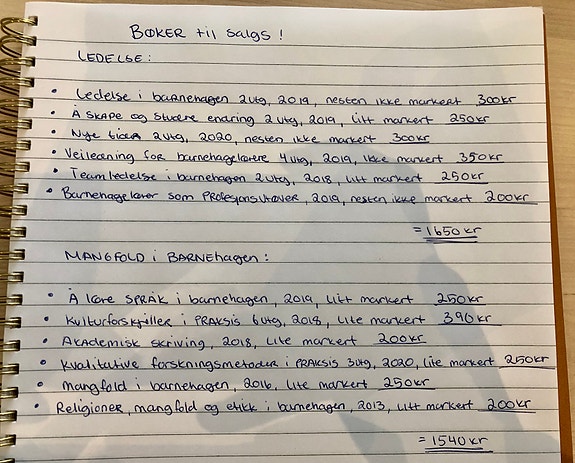 BØKER til salgs!
LEDELSE:
• Ledelse i barnehagen 2utg, 2019, nesten ikke markert 300kr
• Å skape og studere endring 2utg, 2019, litt markert 250kr
• Nye tider 2utg, 2020, nesten ikke markert 300kr
• Veiledning for barnehagelærere 4utg, 2019, ikke markert 350kr
• Teamledelse i barnehagen 2utg, 2018, litt markert 250kr
• Barnehagelærer som Profesjonsutøver, 2019, nesten ikke markert 200kr
= 1650kr
MANGFOLD i BARNEHAGEN:
• Å lære SPRÅK i barnehagen, 2019, litt markert 250kr
• Kulturforskjeller i PRAKSIS 6utg, 2018, lite markert 390kr
• Akademisk skriving, 2018, lite markert 200kr
• Kvalitative forskningsmetoder i PRAKSIS 3utg, 2020, lite markert 250kr
• Mangfold i barnehagen, 2016, lite markert 250kr
• Religioner, mangfold og etikk i barnehagen, 2013, litt markert 200kr
= 1540kr